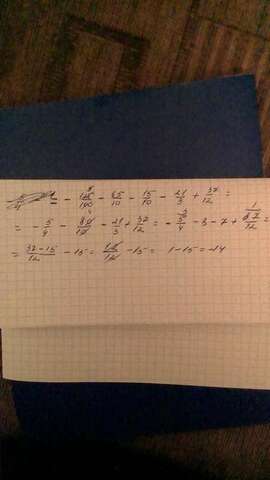 = - 125/100 - 65/10 - 15/10 - 21/3 + 37/12 =
= - 5/4 - 80/10 - 21/3 + 37/12 = - 5/4 - 8 - 7 + 37/12 =
= 37-15/12 - 15 = 12/12 - 15 = 1 - 15 = -14